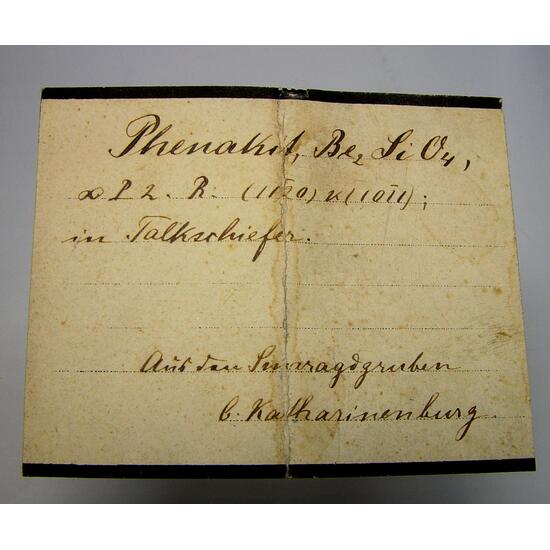 Phenakit, Be₂ Si O₄,
∞ P 2. R. (112̄0) u (101̄1);
in Talkschiefer.
Aus den Smaragdgruben
b. Katharinenburg.